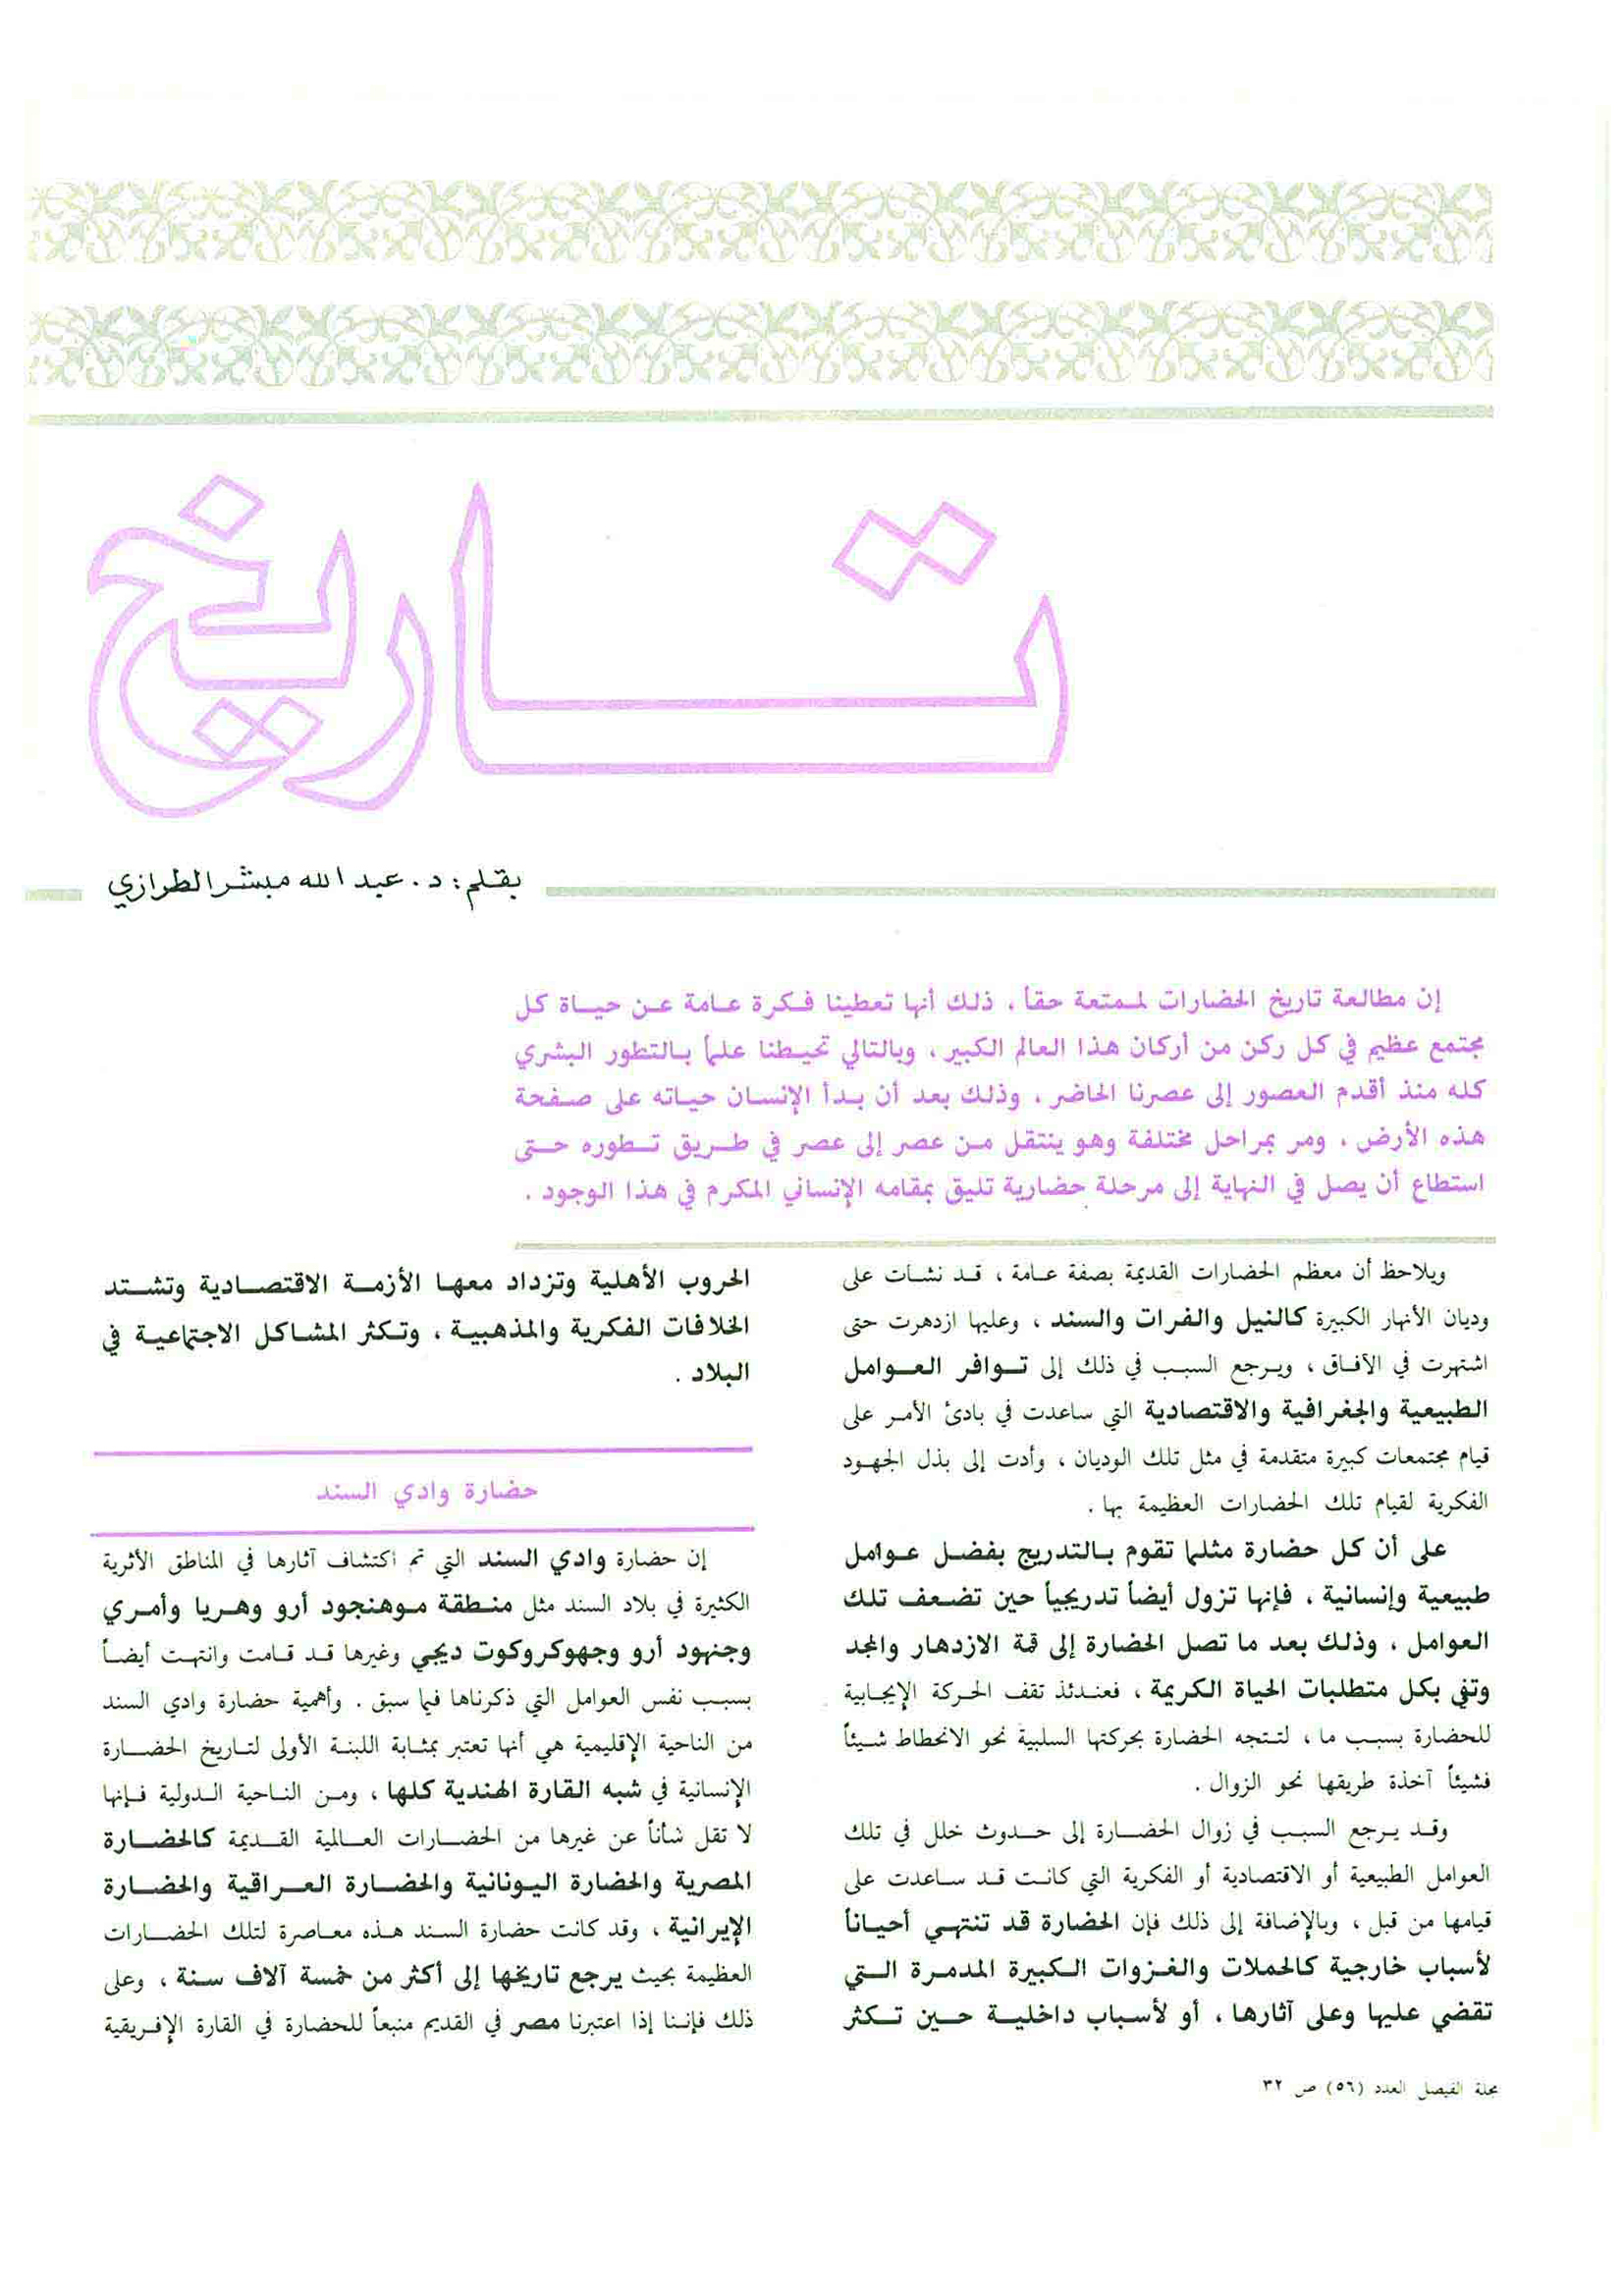 تاريخ
بقلم: د. عبد الله مبشر الطرازي
إن مطالعة تاريخ الحضارات لممتعة حقاً ، ذلك أنها تعطينا فكرة عامة عن حياة كل
مجتمع عظيم في كل ركن من أركان هذا العالم الكبير ، وبالتالي تحيطنا علماً بالتطور البشري
كله منذ أقدم العصور إلى عصرنا الحاضر ، وذلك بعد أن بدأ الإنسان حياته على صفحة
هذه الأرض ، ومر بمراحل مختلفة وهو ينتقل من عصر إلى عصر في طريق تطوره حتى
استطاع أن يصل في النهاية إلى مرحلة حضارية تليق بمقامه الإنساني المكرم في هذا الوجود .
ويلاحظ أن معظم الحضارات القديمة بصفة عامة ، قد نشأت على
وديان الأنهار الكبيرة كالنيل والفرات والسند ، وعليها ازدهرت حتى
اشتهرت في الآفاق ، ويرجع السبب في ذلك إلى توافر العوامل
الطبيعية والجغرافية والاقتصادية التي ساعدت في بادئ الأمر على
قيام مجتمعات كبيرة متقدمة في مثل تلك الوديان ، وأدت إلى بذل الجهود
الفكرية لقيام تلك الحضارات العظيمة بها .
على أن كل حضارة مثلما تقوم بالتدريج بفضل عوامل
طبيعية وإنسانية ، فإنها تزول أيضاً تدريجياً حين تضعف تلك
العوامل ، وذلك بعد ما تصل الحضارة إلى قمة الازدهار والمجد
وتفي بكل متطلبات الحياة الكريمة ، فعندئذ تقف الحركة الإيجابية
للحضارة بسبب ما ، لتتجه الحضارة بحركتها السلبية نحو الانحطاط شيئاً
فشيئاً آخذة طريقها نحو الزوال .
وقد يرجع السبب في زوال الحضارة إلى حدوث خلل في تلك
العوامل الطبيعية أو الاقتصادية أو الفكرية التي كانت قد ساعدت على
قيامها من قبل ، وبالإضافة إلى ذلك فإن الحضارة قد تنتهي أحياناً
لأسباب خارجية كالحملات والغزوات الكبيرة المدمرة التي
تقضي عليها وعلى آثارها ، أو لأسباب داخلية حين تكثر
الحروب الأهلية وتزداد معها الأزمة الاقتصادية وتشتد
الخلافات الفكرية والمذهبية ، وتكثر المشاكل الاجتماعية في
البلاد .
حضارة وادي السند
إن حضارة وادي السند التي تم اكتشاف آثارها في المناطق الأثرية
الكثيرة في بلاد السند مثل منطقة موهنجود أرو وهربا وأمري
وجنهود أرو وجهوكروكوت ديجي وغيرها قد قامت وانتهت أيضاً
بسبب نفس العوامل التي ذكرناها فيما سبق . وأهمية حضارة وادي السند
من الناحية الإقليمية هي أنها تعتبر بمثابة اللبنة الأولى لتاريخ الحضارة
الإنسانية في شبه القارة الهندية كلها ، ومن الناحية الدولية فإنها
لا تقل شأناً عن غيرها من الحضارات العالمية القديمة كالحضارة
المصرية والحضارة اليونانية والحضارة العراقية والحضارة
الإيرانية ، وقد كانت حضارة السند هذه معاصرة لتلك الحضارات
العظيمة بحيث يرجع تاريخها إلى أكثر من خمسة آلاف سنة ، وعلى
ذلك فإننا إذا اعتبرنا مصر في القديم منبعاً للحضارة في القارة الإفريقية
مجلة الفيصل العدد (٥٦) ص ٣٢